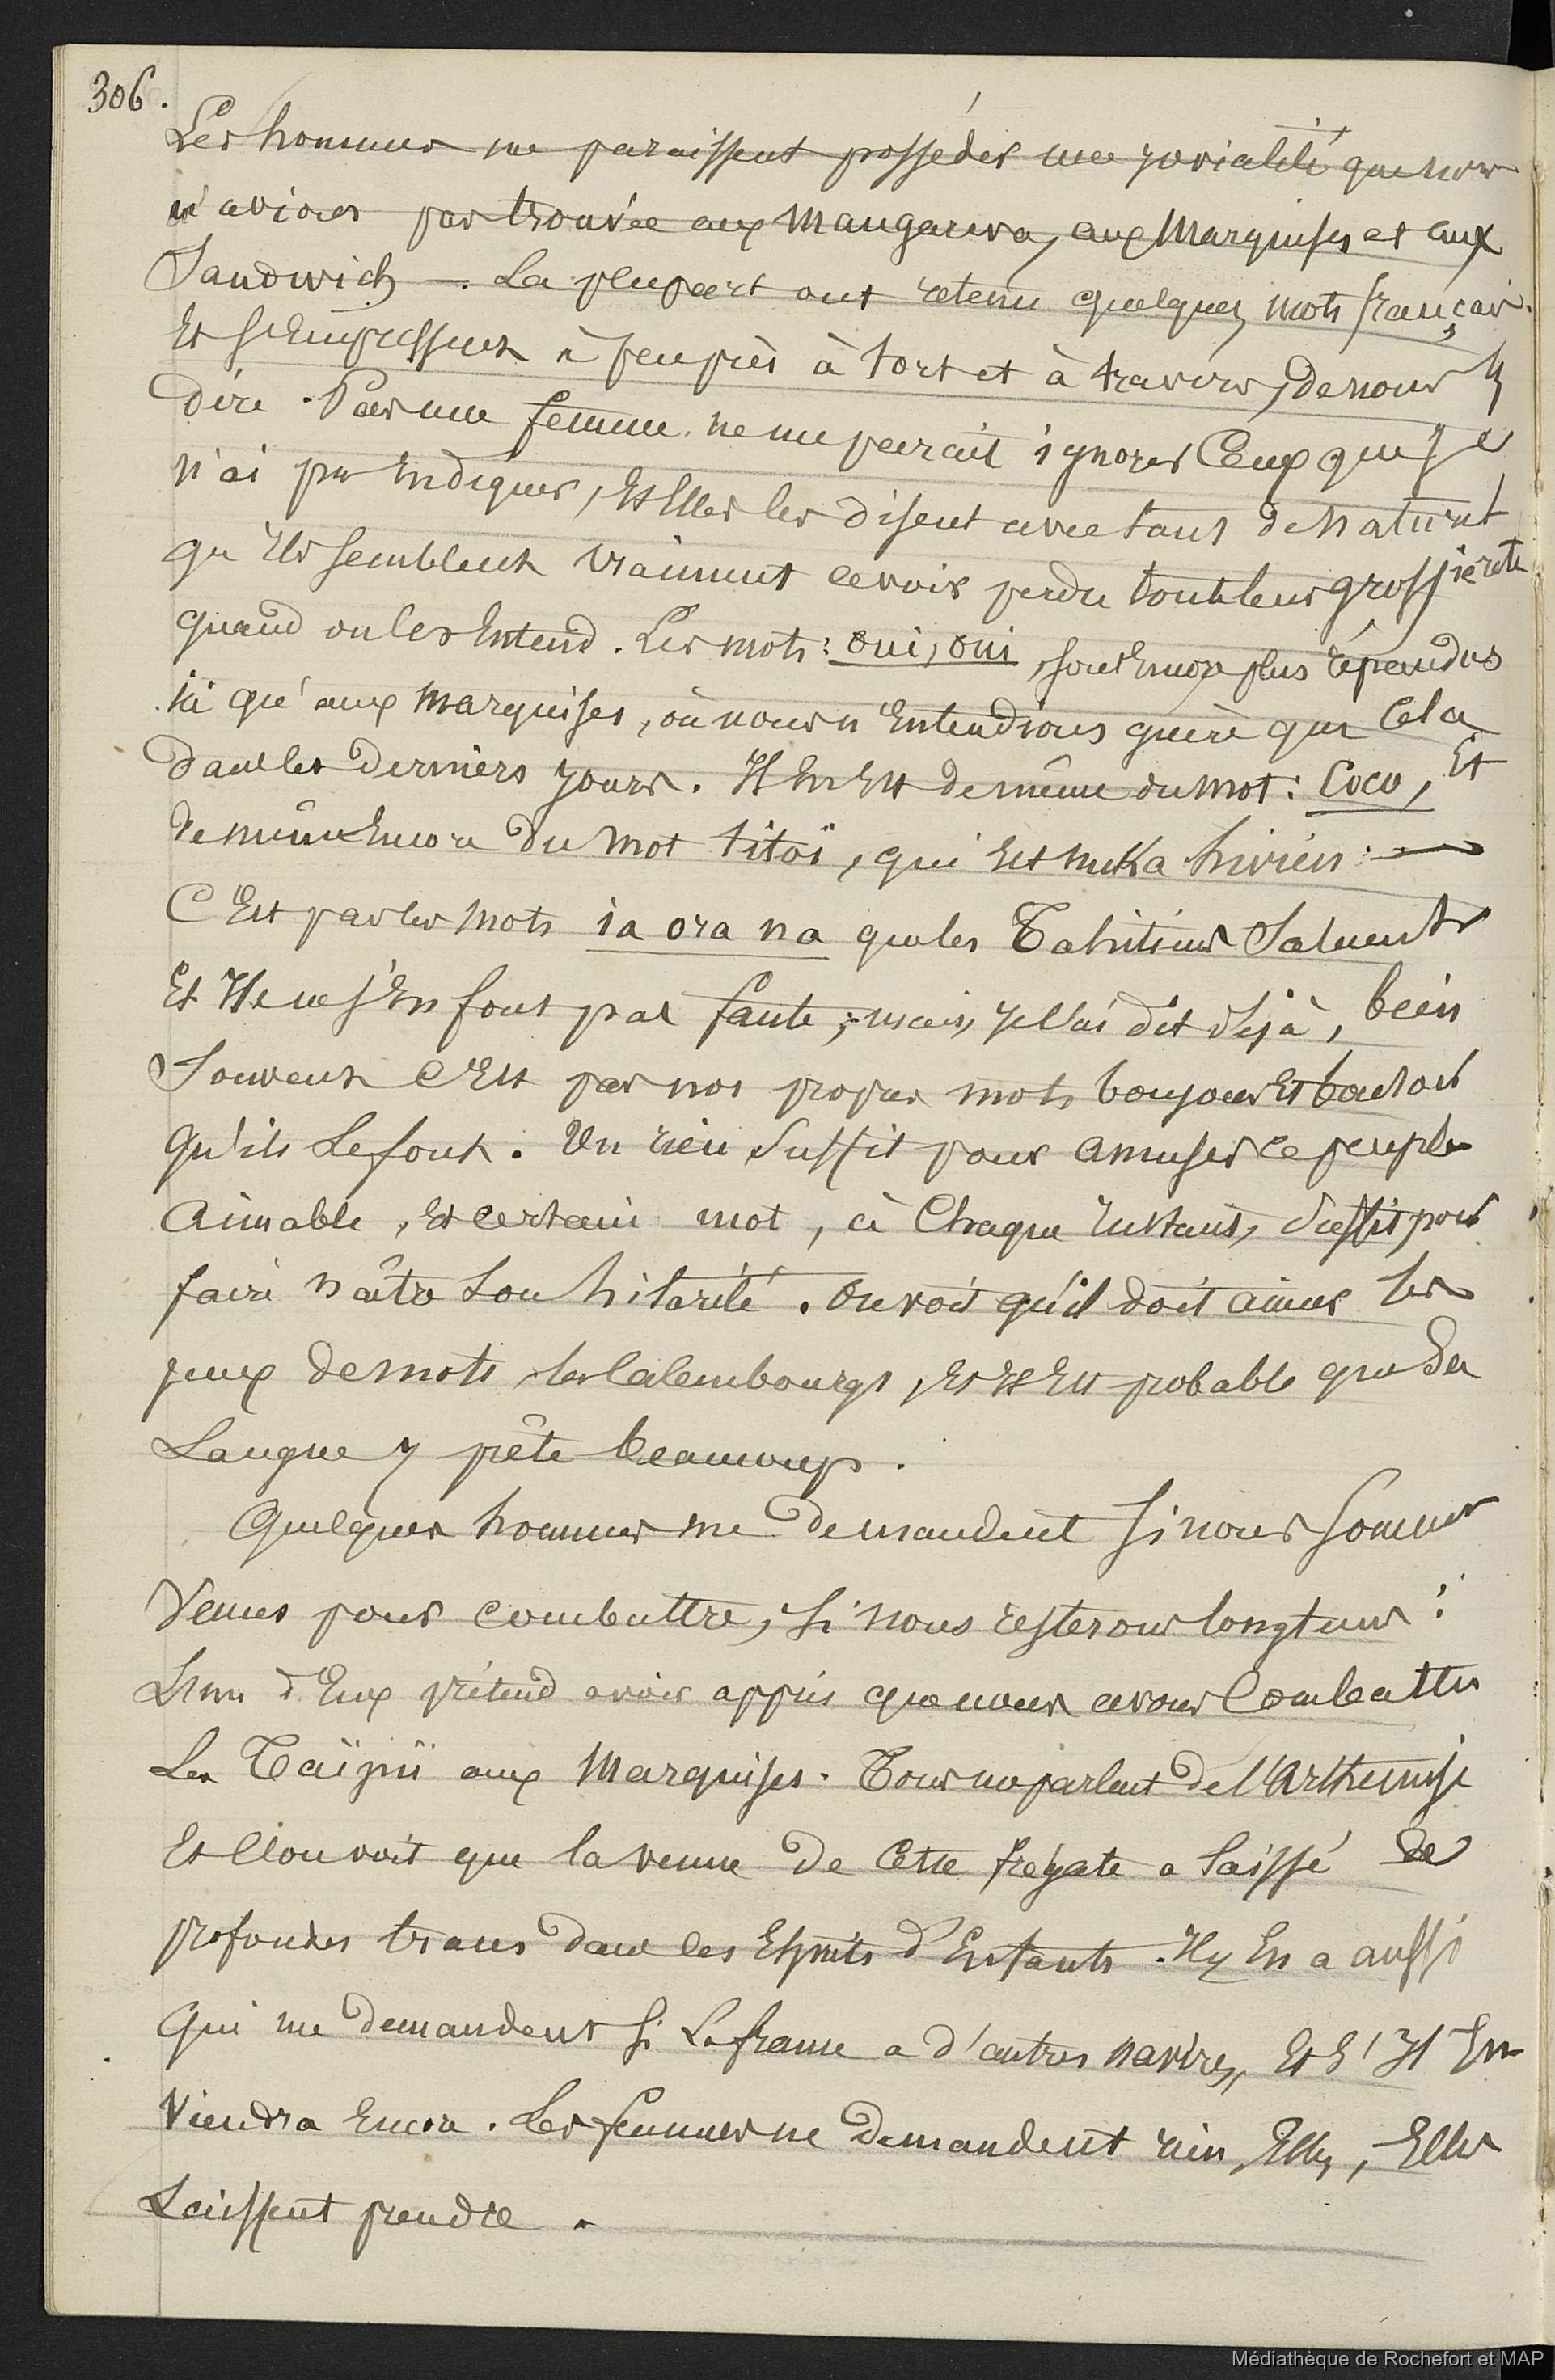 306.
Les hommes me paraissent posséder une jovialité que nous
n'avions pas trouvée aux Mangareva, aux Marquises et aux
Sandwich —. La plupart ont retenu quelques mots français.
Et s'Empressent à peu près à tort et à travers, de nous les
dire. Pas une femme ne me parait ignorer Ceux que je
n'ai pu Indiquer, Et Elles les disent avec tant de naturel
qu'ils semblent vraiment avoir perdu toute leur grossièreté
quand on les Entend. Les mots: oui, oui, sont Encore plus répandus
ici qu'aux Marquises, où nous n'Entendions guère que Cela
dans les derniers jours. Il En Est de même du mot: Coco, Et
de même Encore du mot titoï, qui Est nuka hivien: —
C'Est par les mots ia ora na que les Tahitiens Saluent
Et Ils ne s'En font pas faute; mais, je l'ai dit déjà, bien
Souvent C'Est par nos propres mots bonjour Et bonsoir
qu'ils Le font. Un rien Suffit pour amuser ce peuple
aimable, Et certain mot, à Chaque Instant, Suffit pour
faire naître Son hilarité. On voit qu'il doit aimer les
jeux de mots, les Calembourgs, Et Il Est probable que Sa
Langue y prête beaucoup.
Quelques hommes me demandent Si nous Sommes
Venus pour combattre, Si nous resterons longtems:
L'un d'Eux prétend avoir appris que nous avons Combattu
Les Taïpii aux Marquises. Tous me parlent de l'Arthémise
Et l'on voit que la venue de Cette frégate a laissé de
profondes traces dans les Esprits d'Enfants. Il y En a aussi
Qui me demandent Si La france a d'autres navires, Et S'Il En
Viendra Encore. Les femmes ne Demandent rien, Elles, Elles
Laissent prendre.
Médiathèque de Rochefort et MAP